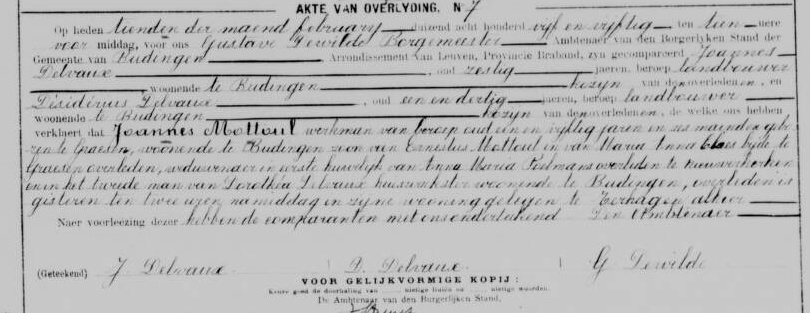 AKTE VAN OVERLYDING. N 7
Op heden tienden der maend february duizend acht honderd vyf en vyftig ten tien ure
voor middag, voor ons Gustave Dewilde Borgemeester Ambtenaer van den Borgerlyken Stand der
Gemeente van Budingen Arrondissement van Leuven, Provincie Braband, zyn gecompareerd Joannes
Delvaux, oud zestig jaeren, beroep landbouwer
woonende te Budingen kozyn van den overledenen, en
Désidérius Delvaux, oud een en dertig jaeren, beroep landbouwer
woonende te Budingen kozyn van den overledenen, de welke ons hebben
verklaert dat Joannes Mottoul werkman van beroep oud een en vyftig jaren en zes maenden gebo
ren te Graesen, woonende te Budingen zoon van Ernestus Mottoul en van Maria Anna Claes byde te
Graesen overleden, weduwnaer in eerste huwelyk van Anna Maria Poelmans overleden te Neerherken
en in het tweede man van Dorothea Delvaux huiswerkster woonende te Budingen, overleden is
gisteren ten twee uren namiddag in zyne wooning gelegen te alhier
Naer voorleezing dezer hebben de comparanten met ons onderteekend Den Ambtenaer
(Geteekend) J. Delvaux D. Delvaux G Dewilde
VOOR GELIJKVORMIGE KOPIJ :
Keure goed de doorhaling van nietige linien en nietige woorden.
De Ambtenaar van den Burgerlijken Stand,